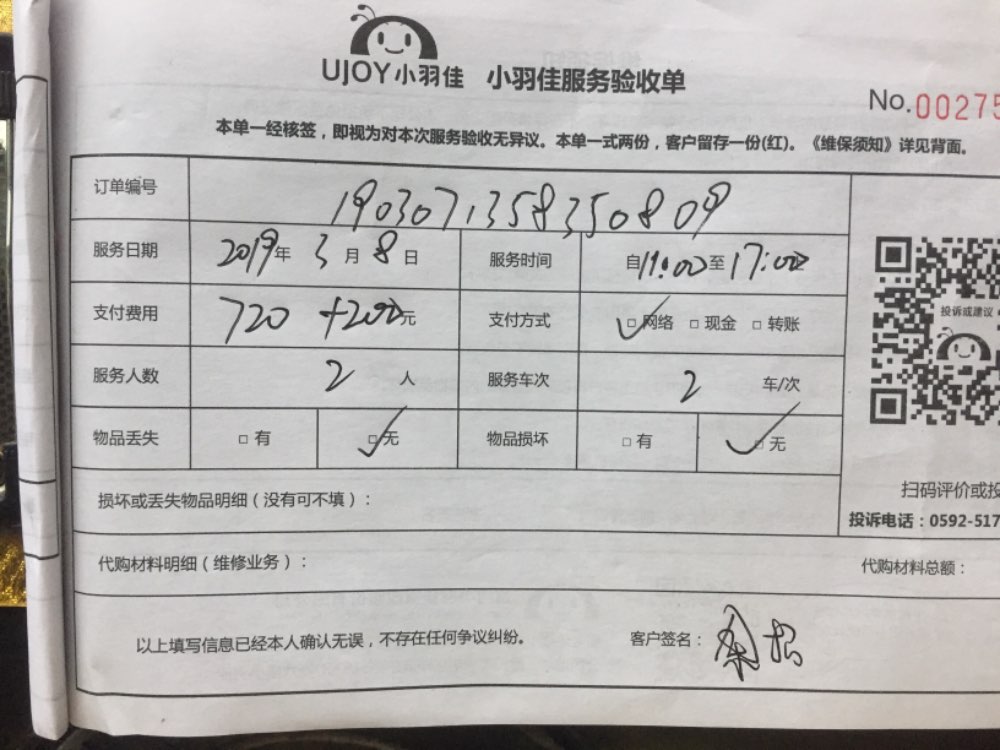 UJOY小羽佳 小羽佳服务验收单
No.00275
本单一经核签，即视为对本次服务验收无异议。本单一式两份，客户留存一份(红)。《维保须知》详见背面。
订单编号 190307135835080809
服务日期 2019年 3月 8日 服务时间 自11:00至17:00
支付费用 720 +200元 支付方式 □网络 □现金 □转账
投诉或建议
服务人数 2 人 服务车次 2 车/次
物品丢失 □有 □无 物品损坏 □有 □无
扫码评价或投
损坏或丢失物品明细（没有可不填）：
投诉电话：0592-517
代购材料明细（维修业务）： 代购材料总额：
以上填写信息已经本人确认无误，不存在任何争议纠纷。 客户签名：